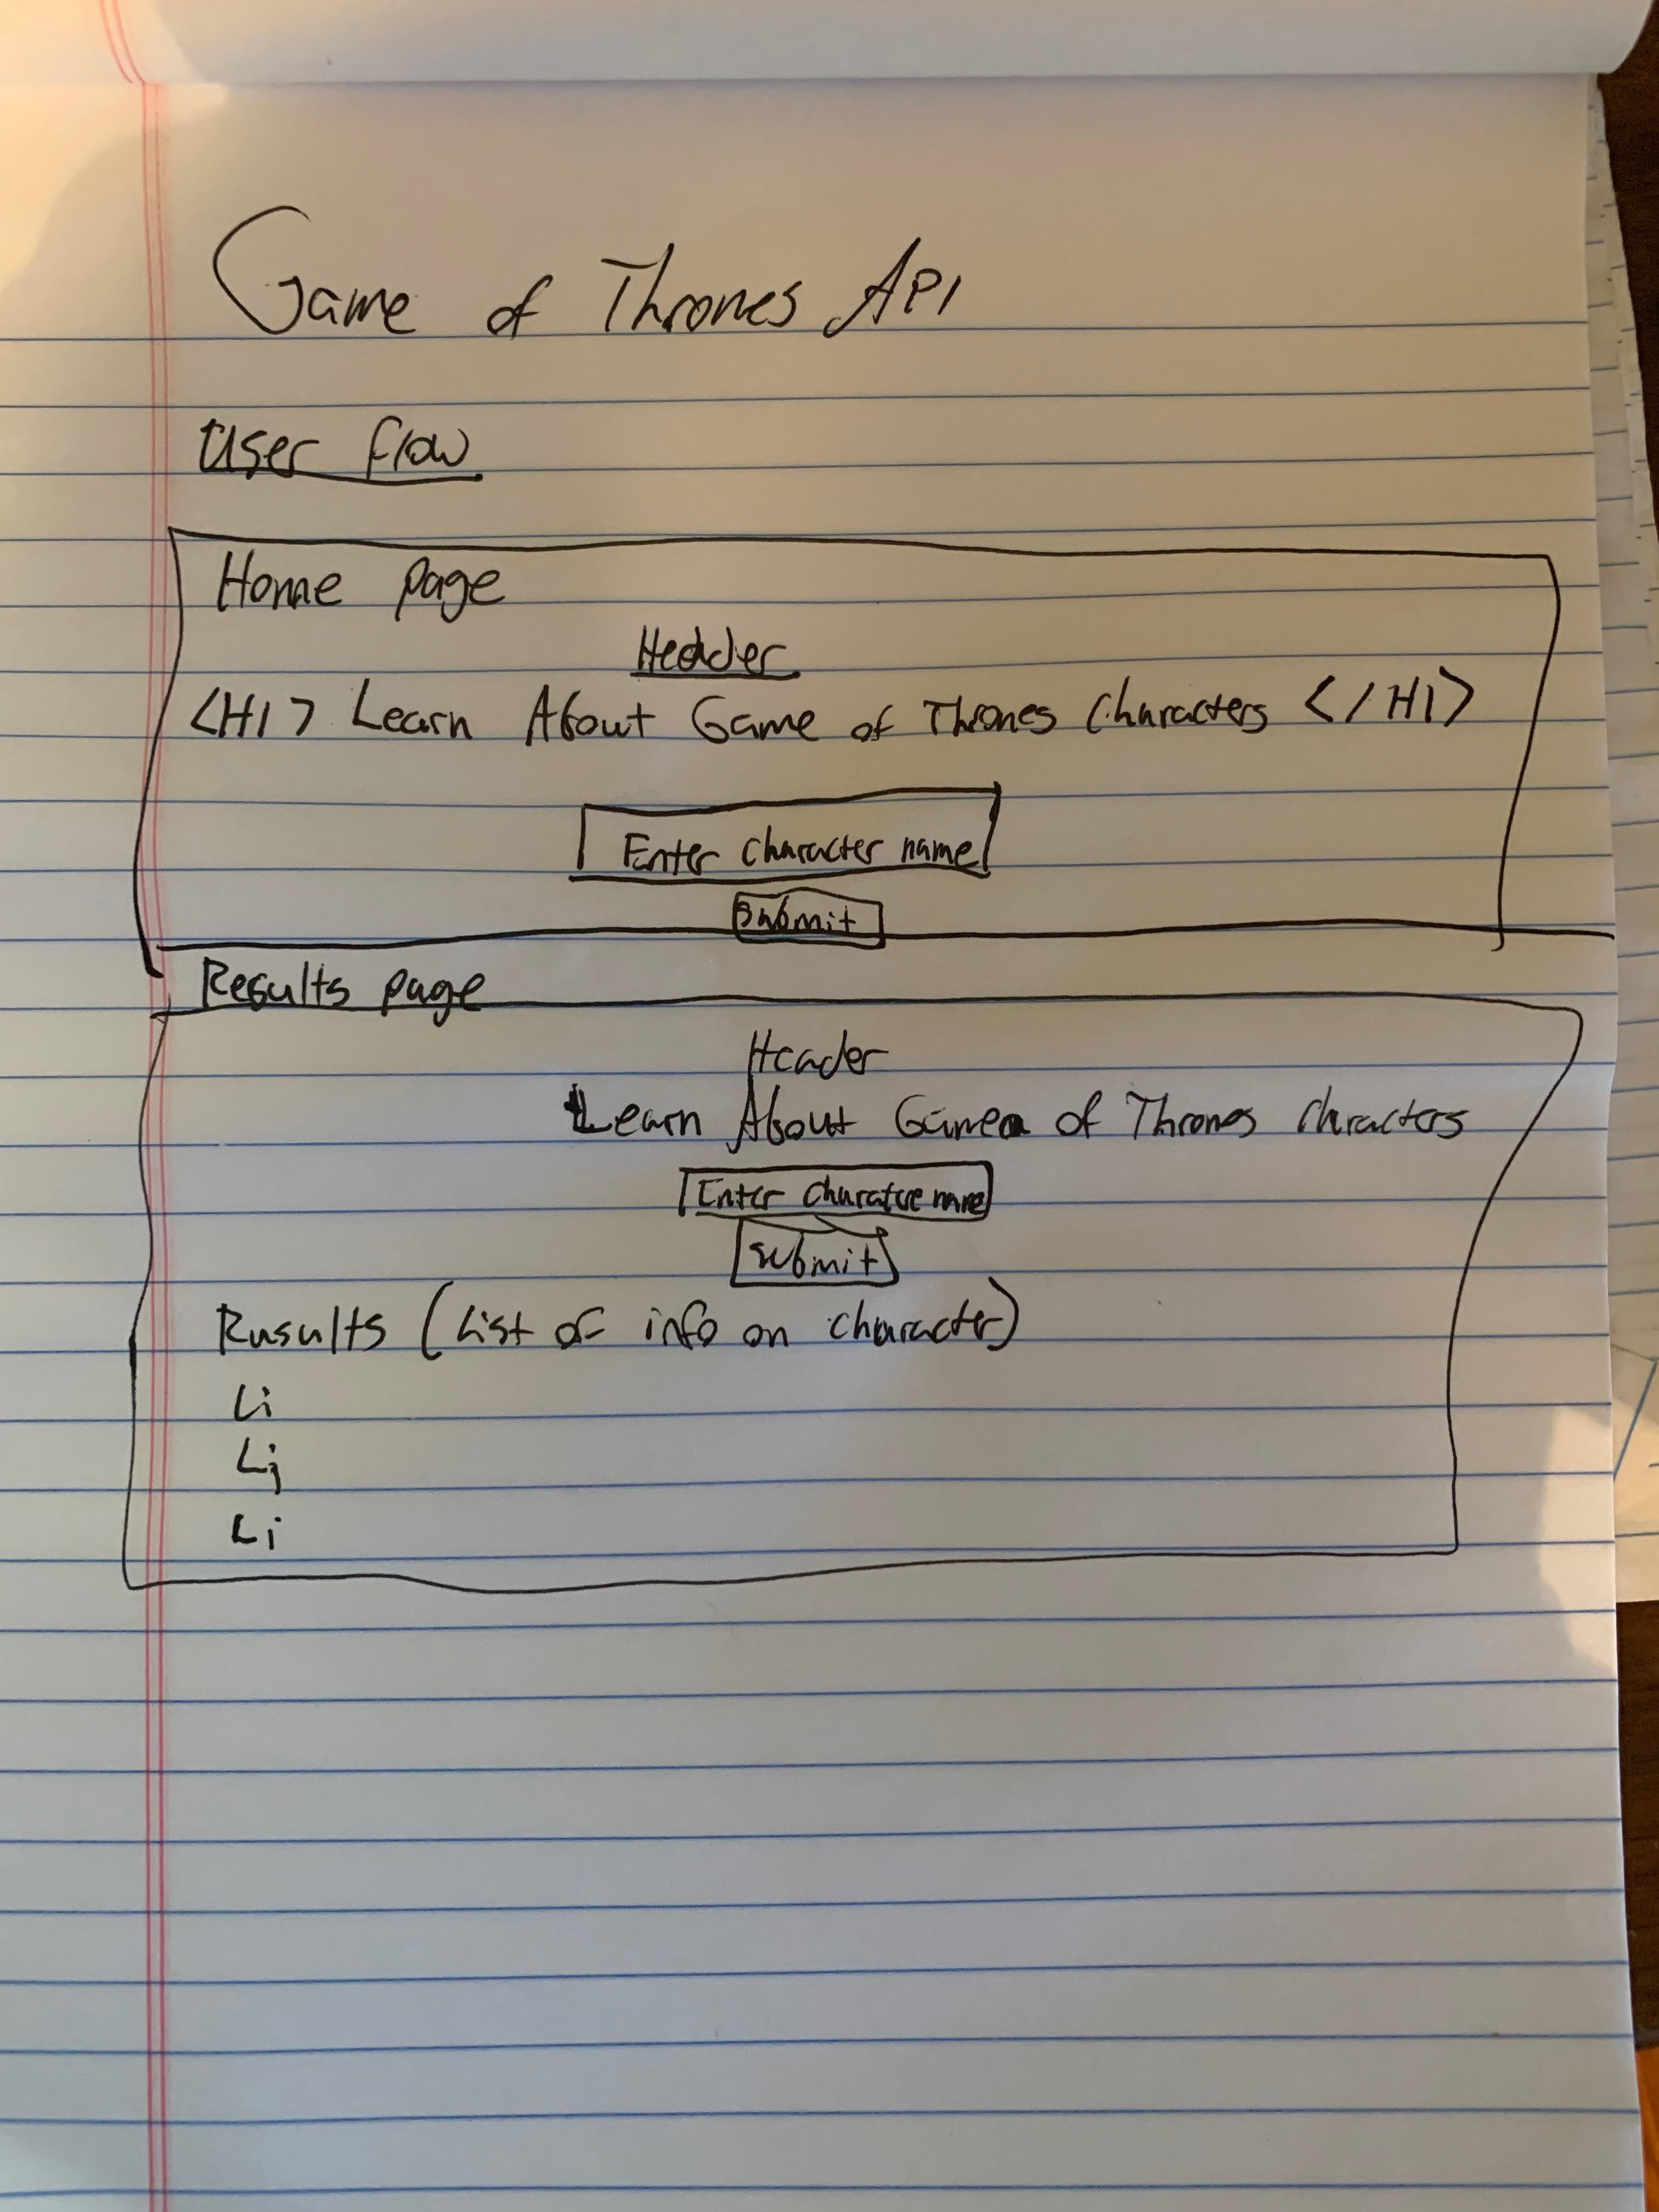 Game of Thrones API
User flow
Home page
Header
<H1> Learn About Game of Thrones Characters </H1>
Enter character name
Submit
Results page
Header
Learn About Game of Thrones Characters
Enter character name
Submit
Rusults (List of info on character)
Li
Li
Li